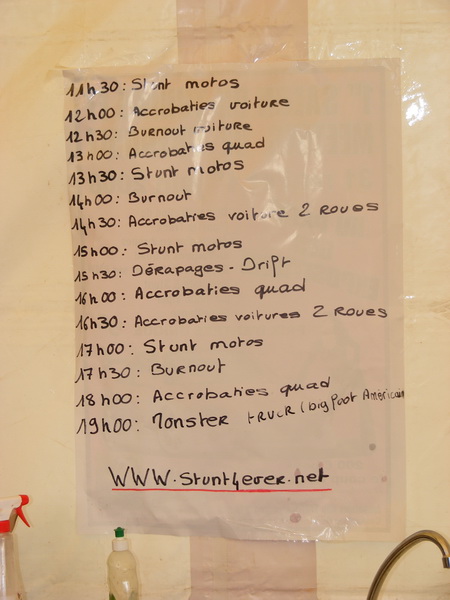 11h30: Stunt motos
12h00: Accrobaties voiture
12h30: Burnout voiture
13h00: Accrobaties quad
13h30: Stunt motos
14h00: Burnout
14h30: Accrobaties voiture 2 Roues
15h00: Stunt motos
15h30: Dérapages - Drift
16h00: Accrobaties quad
16h30: Accrobaties voitures 2 Roues
17h00: Stunt motos
17h30: Burnout
18h00: Accrobaties quad
19h00: Monster truck (big Foot Américain
WWW.Stunt4ever.net